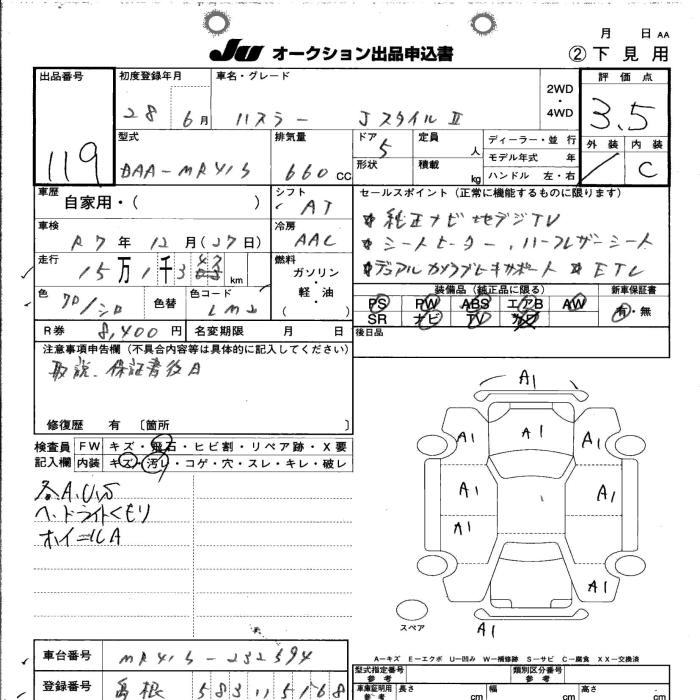 月 日 AA
JU オークション出品申込書
②下見用
出品番号 119
初度登録年月 28 6月
車名・グレード ハスラー Jスタイル Ⅱ
2WD・4WD
評価点 3.5
外装 内装 C
型式 DAA-MR41S
排気量 660 CC
ドア 5
形状
定員 人
積載 kg
ディーラー・並行
モデル年式 年
ハンドル 左・右
車歴 自家用・( )
シフト AT
車検 R7年 12月(27日)
冷房 AAC
走行 15万1千3 km
燃料 ガソリン・軽・油 ( )
色 クロ/シロ 色替
色コード
R券 8,400円 名変期限 月 日
セールスポイント(正常に機能するものに限ります)
純正ナビ 地デジTV
シートヒーター、ハーフレザーシート
デュアルカメラブレーキサポート ETC
装備品(純正品に限る)
PS PW ABS エアB AW
SR ナビ TV
新車保証書 有・無
後日品
注意事項申告欄(不具合内容等は具体的に記入してください)
取説、保証書後日
修復歴 有 〔箇所 〕
検査員記入欄
FW キズ・飛石・ヒビ割・リペア跡・X要
内装 キズ・汚レ・コゲ・穴・スレ・キレ・破レ
各A.U.S
ヘッドライトくもり
ホイールA
A1
A1
A1 A1
A1 A1
A1
A1
A1
スペア
A—キズ E—エクボ U—凹み W—補修跡 S—サビ C—腐食 XX—交換済
車台番号 MR41S-232594
登録番号 島根 583
型式指定番号 参考
類別区分番号 参考
車庫証明用 参考 長さ cm 幅 cm 高さ cm